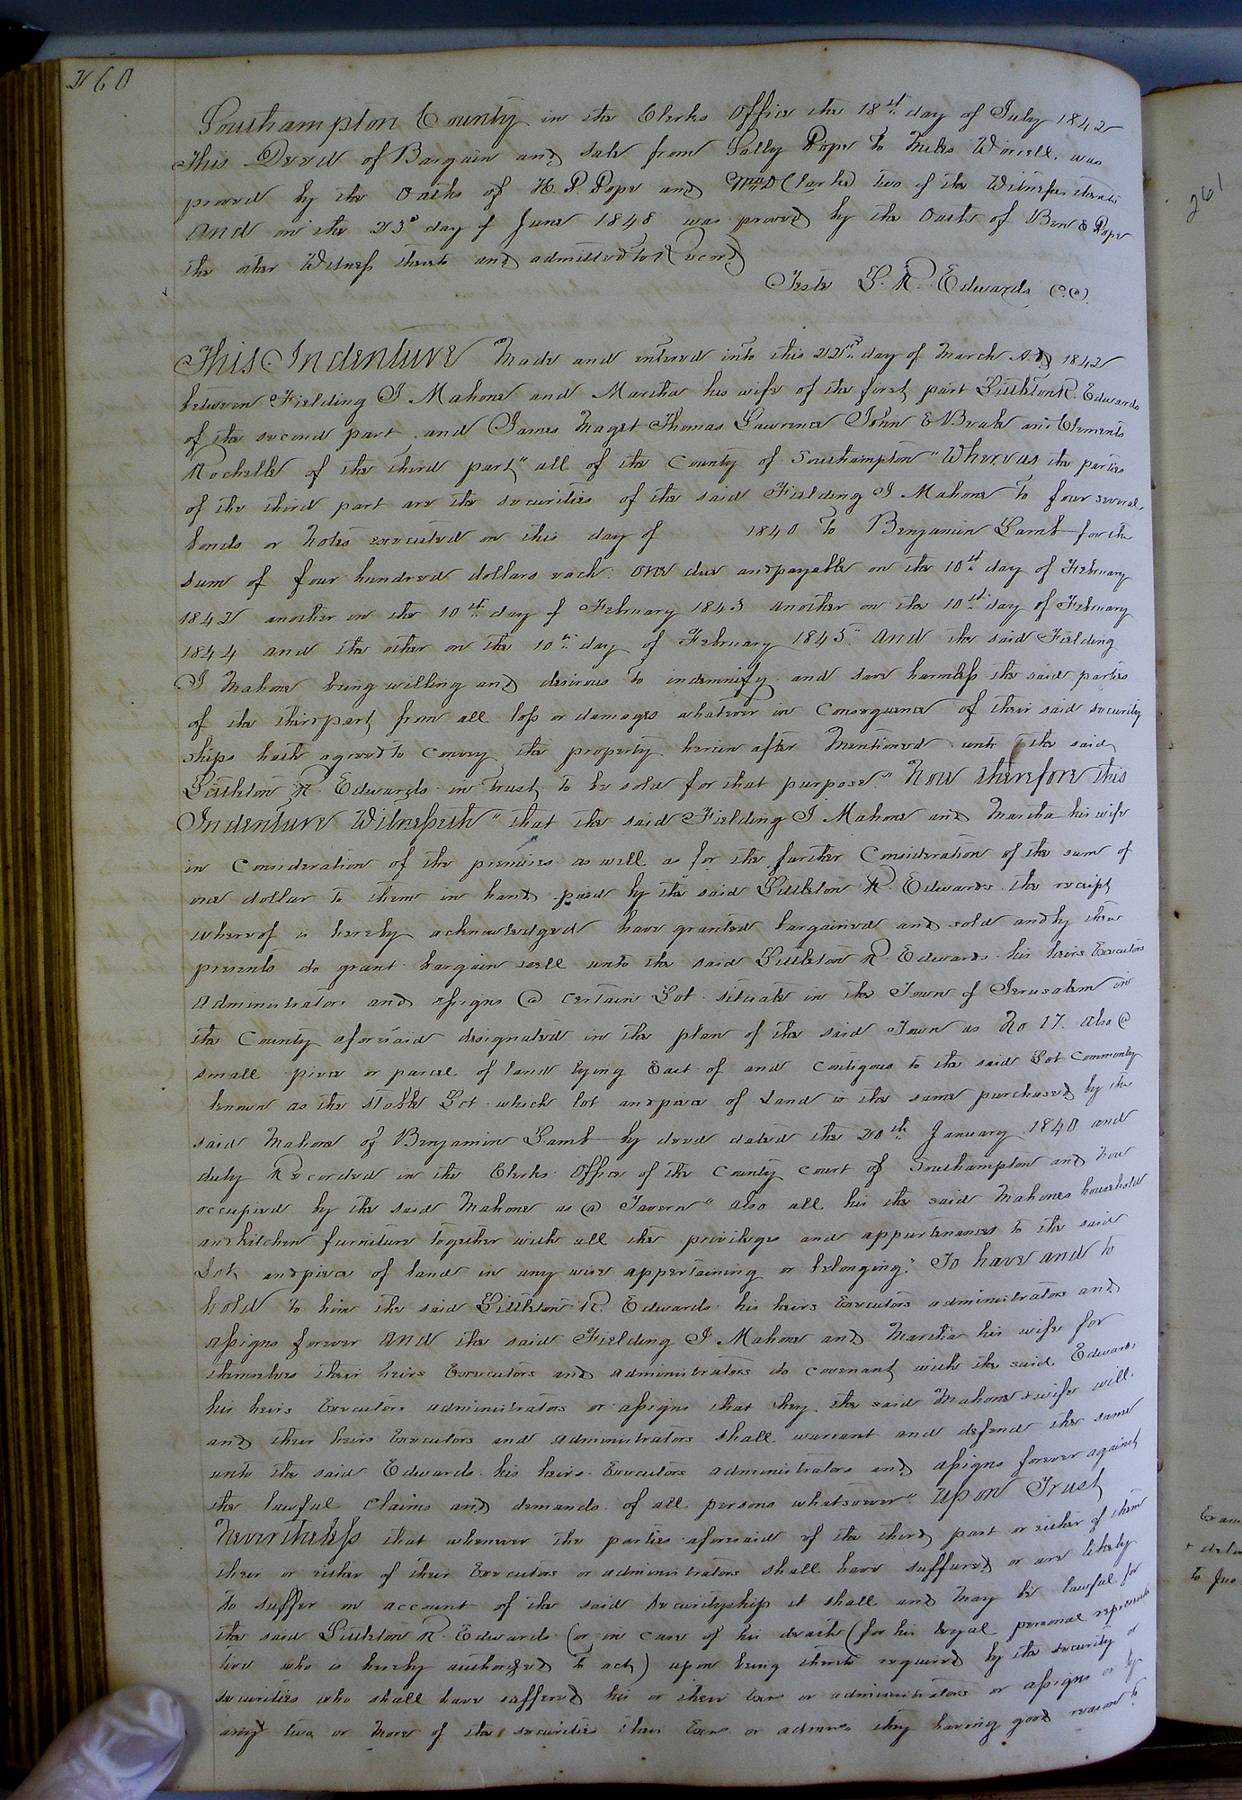 260
Southampton County in the Clerks Office the 18th day of July 1842
This Deed of Bargain and sale from Sally Pope to Miles Worrell was
proved by the Oaths of H. P. Pope and Wm D Clarke two of the Witnesses thereto
And on the 23d day of June 1848 was proved by the Oath of Ben E Pope
the other Witness thereto and admitted to Record
Teste L. R. Edwards C.C.
This Indenture Made and entered into this 22nd day of March AD 1842
between Fielding J Mahone and Martha his wife of the first part Littleton R. Edwards
of the second part and James Maget Thomas Lawrence John E Beale and Clements
Rochelle of the third part" all of the County of Southampton" Whereas the parties
of the third part are the securities of the said Fielding J Mahone to four several
bonds or notes executed on this day of 1840 to Benjamin Lamb for the
sum of four hundred dollars each: One due and payable on the 10th day of February
1842 another on the 10th day of February 1843 another on the 10th day of February
1844 and the other on the 10th day of February 1845" And the said Fielding
J Mahone being willing and desirous to indemnify and save harmless the said parties
of the third part from all loss or damages whatever in consequence of their said security
ships hath agreed to convey the property herein after Mentioned unto the said
Littleton R. Edwards in trust to be sold for that purpose" Now therefore this
Indenture Witnesseth" that the said Fielding J Mahone and Martha his wife
in Consideration of the premises as well as for the further Consideration of the sum of
one dollar to them in hand paid by the said Littleton R. Edwards the receipt
whereof is hereby acknowledged have granted bargained and sold and by these
presents do grant bargain sell unto the said Littleton R Edwards his heirs Executors
Administrators and assigns @ certain Lot situate in the Town of Jerusalem in
the County aforesaid designated in the plan of the said Town as No 17. also @
small piece or parcel of land lying East of and contigous to the said Lot commonly
known as the Stable Lot which lot and piece of Land is the same purchased by the
said Mahone of Benjamin Lamb by deed dated the 20th January 1840 and
duly Recorded in the Clerks Office of the County Court of Southampton and now
occupied by the said Mahone as @ Tavern" also all his the said Mahones household
and kitchen furniture together with all the privileges and appurtenances to the said
Lot and piece of land in any wise appertaining or belonging" To have and to
hold to him the said Littleton R. Edwards his heirs Executors administrators and
assigns forever And the said Fielding J Mahone and Martha his wife for
themselves their heirs Executors and administrators do covenant with the said Edwards
his heirs Executors administrators or assigns that they the said Mahone & wife will
and their heirs Executors and administrators shall warrant and defend the same
unto the said Edwards his heirs Executors administrators and assigns forever against
the lawful claims and demands of all persons whatsoever" Upon Trust
Nevertheless that whenever the parties aforesaid of the third part or either of them
their or either of their Executors or administrators shall have suffered or are likely
to suffer on account of the said securityship it shall and may be lawful for
the said Littleton R. Edwards (or in case of his death (for his legal personal representa
tive who is hereby authorized to act) upon being thereto required by the security or
securities who shall have suffered his or their Exrs or administrators or assigns or by
any two or more of the securities their Exrs or admrs they having good reason to
261
Exam
+ deliv
To Jno